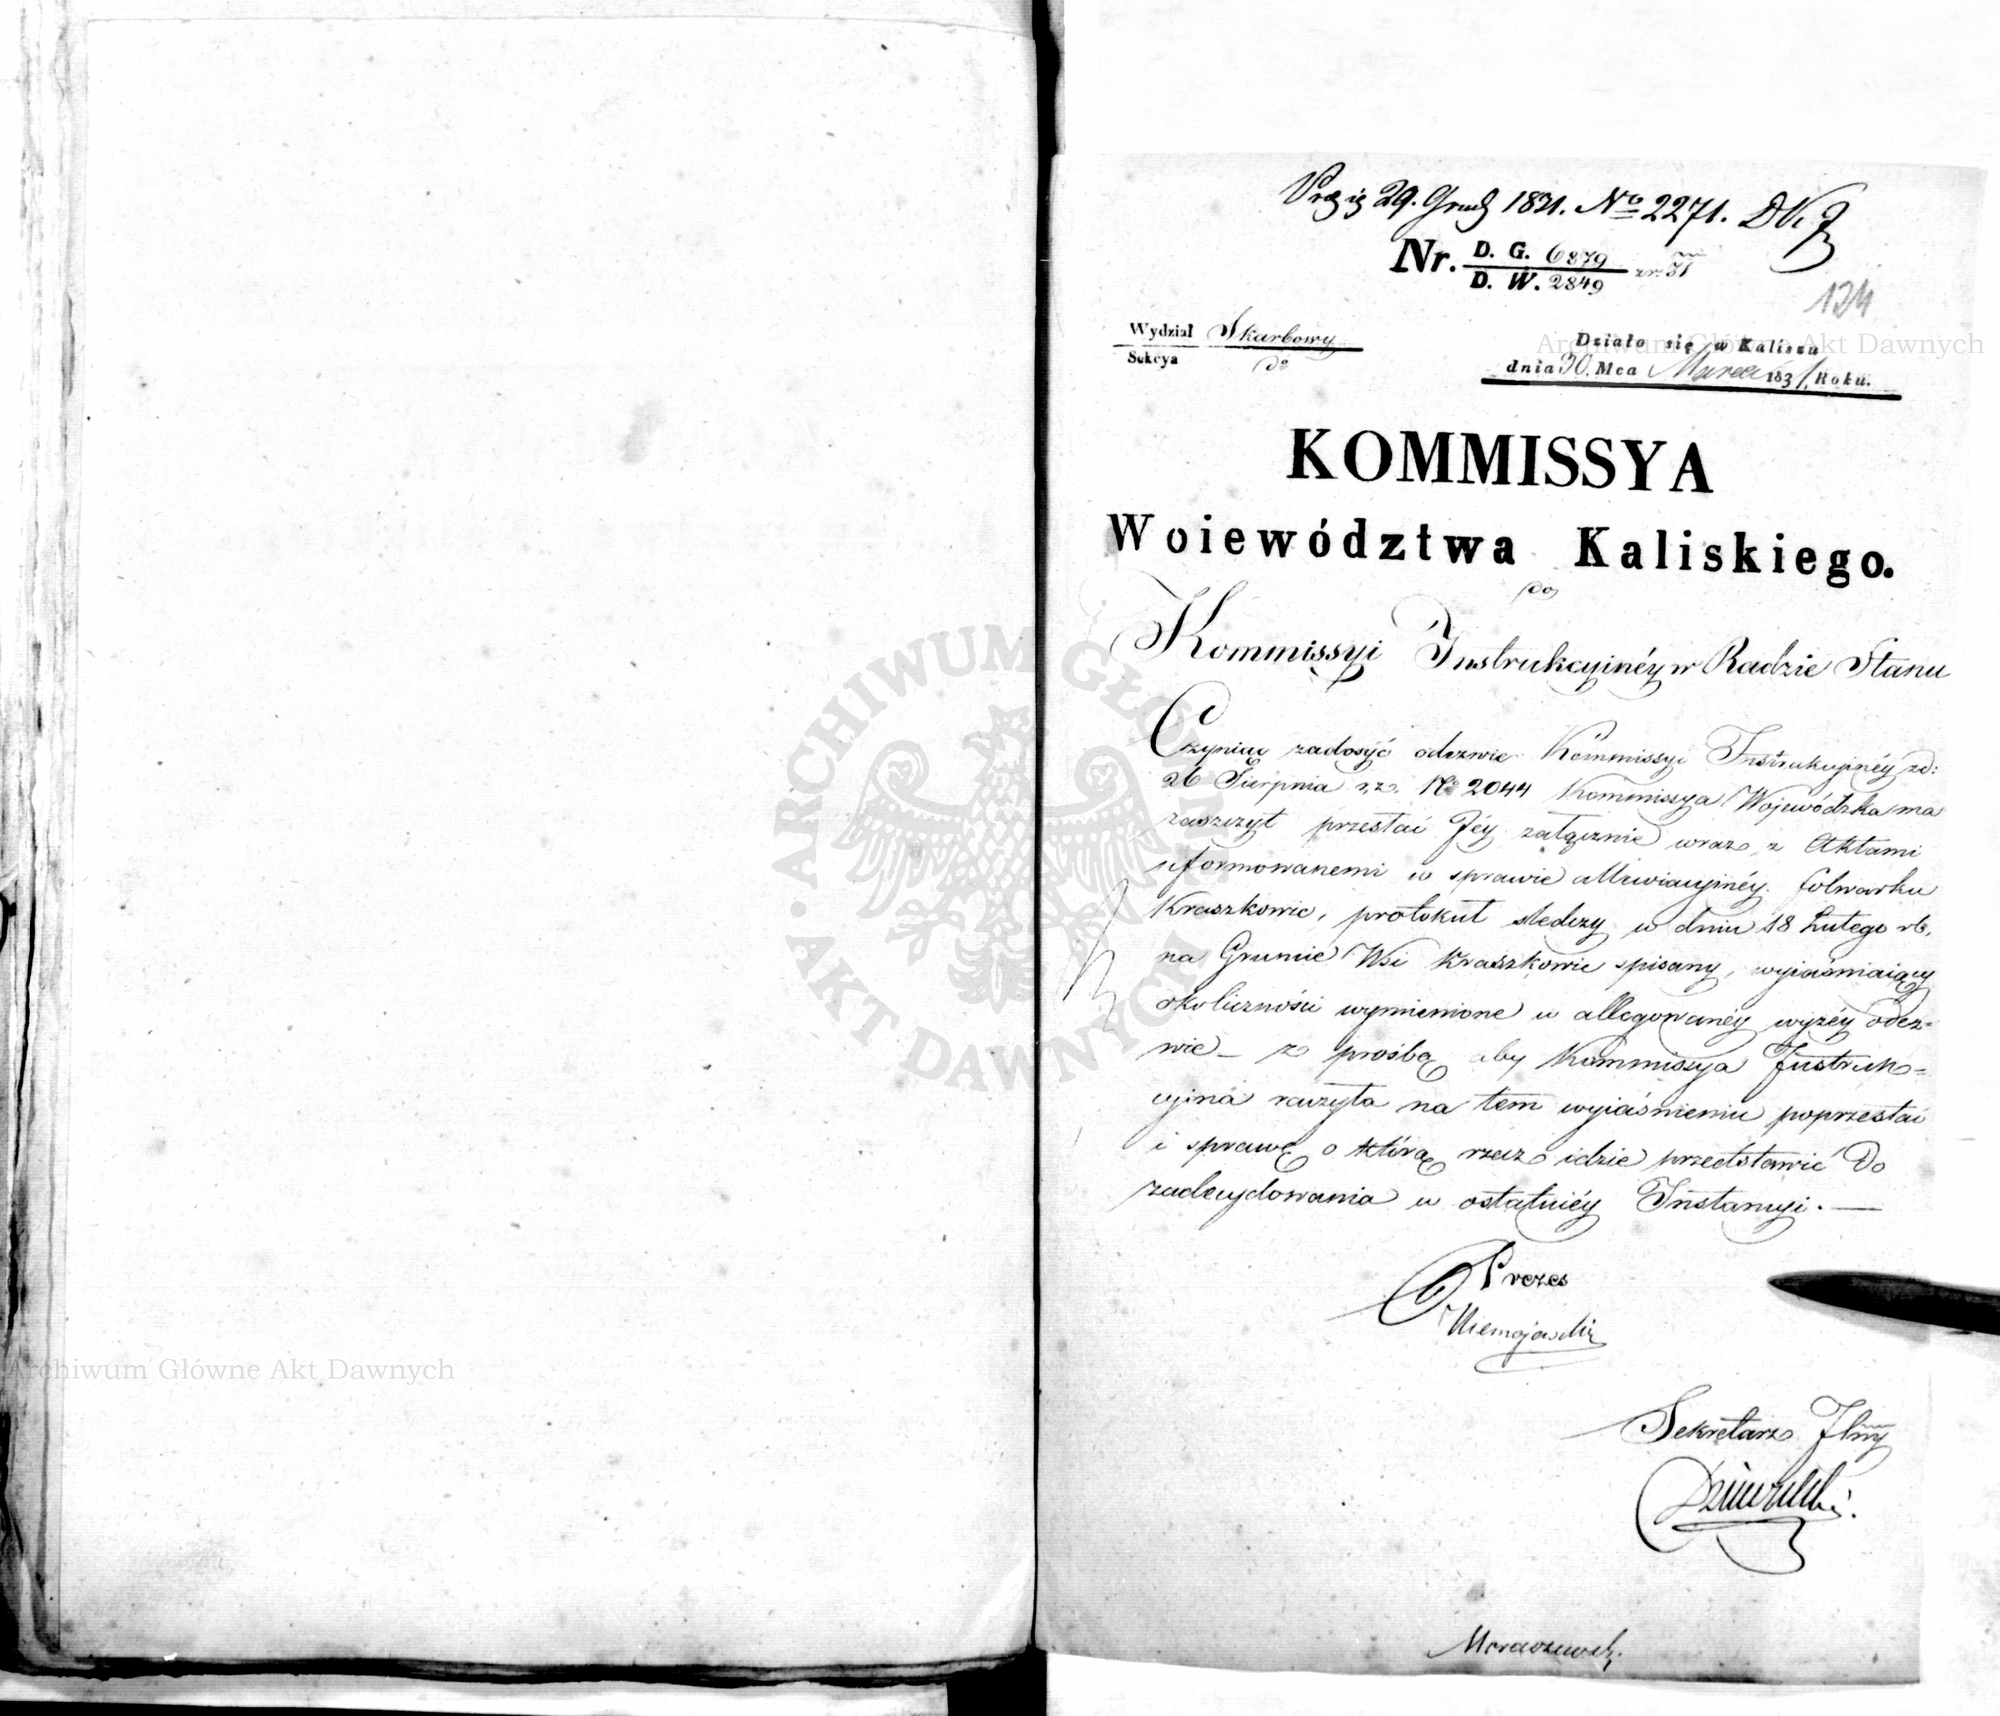 29. Grud 1831. No 2271.
Nr. D. G. 6879
D. W. 2849
124
Wydział Skarbowy
Sekcya
Działo się w Kaliszu
dnia 30. Mca Marca 1831 Roku.
KOMMISSYA
Woiewództwa Kaliskiego.
do
Kommissyi Instrukcyinéy w Radzie Stanu
Czyniąc zadosyć odezwie Kommissyi Instrukcyinéy zd:
26 Sierpnia r.z. No 2044 Kommissya Wojewódzka ma
zaszczyt przesłać Jéy załącznie wraz z Aktami
uformowanemi w sprawie folwarku
Kraszkowic, protokuł śledczy w dniu 18 Lutego rb.
na Gruncie Wsi Kraszkowic spisany, wyiaśniaiący
okoliczności wymienione w allegowanéy wyżéy odez=
wie – z prośbą aby Kommissya Instruk=
cyina raczyła na tem wyiaśnieniu poprzestać
i sprawę o którą rzecz idzie przedstawić do
zadecydowania w ostatniéy Instancyi. —
Prezes
Niemojowski
Sekretarz Jlny
Archiwum Główne Akt Dawnych
ARCHIWUM GŁÓWNE AKT DAWNYCH
Archiwum Główne Akt Dawnych